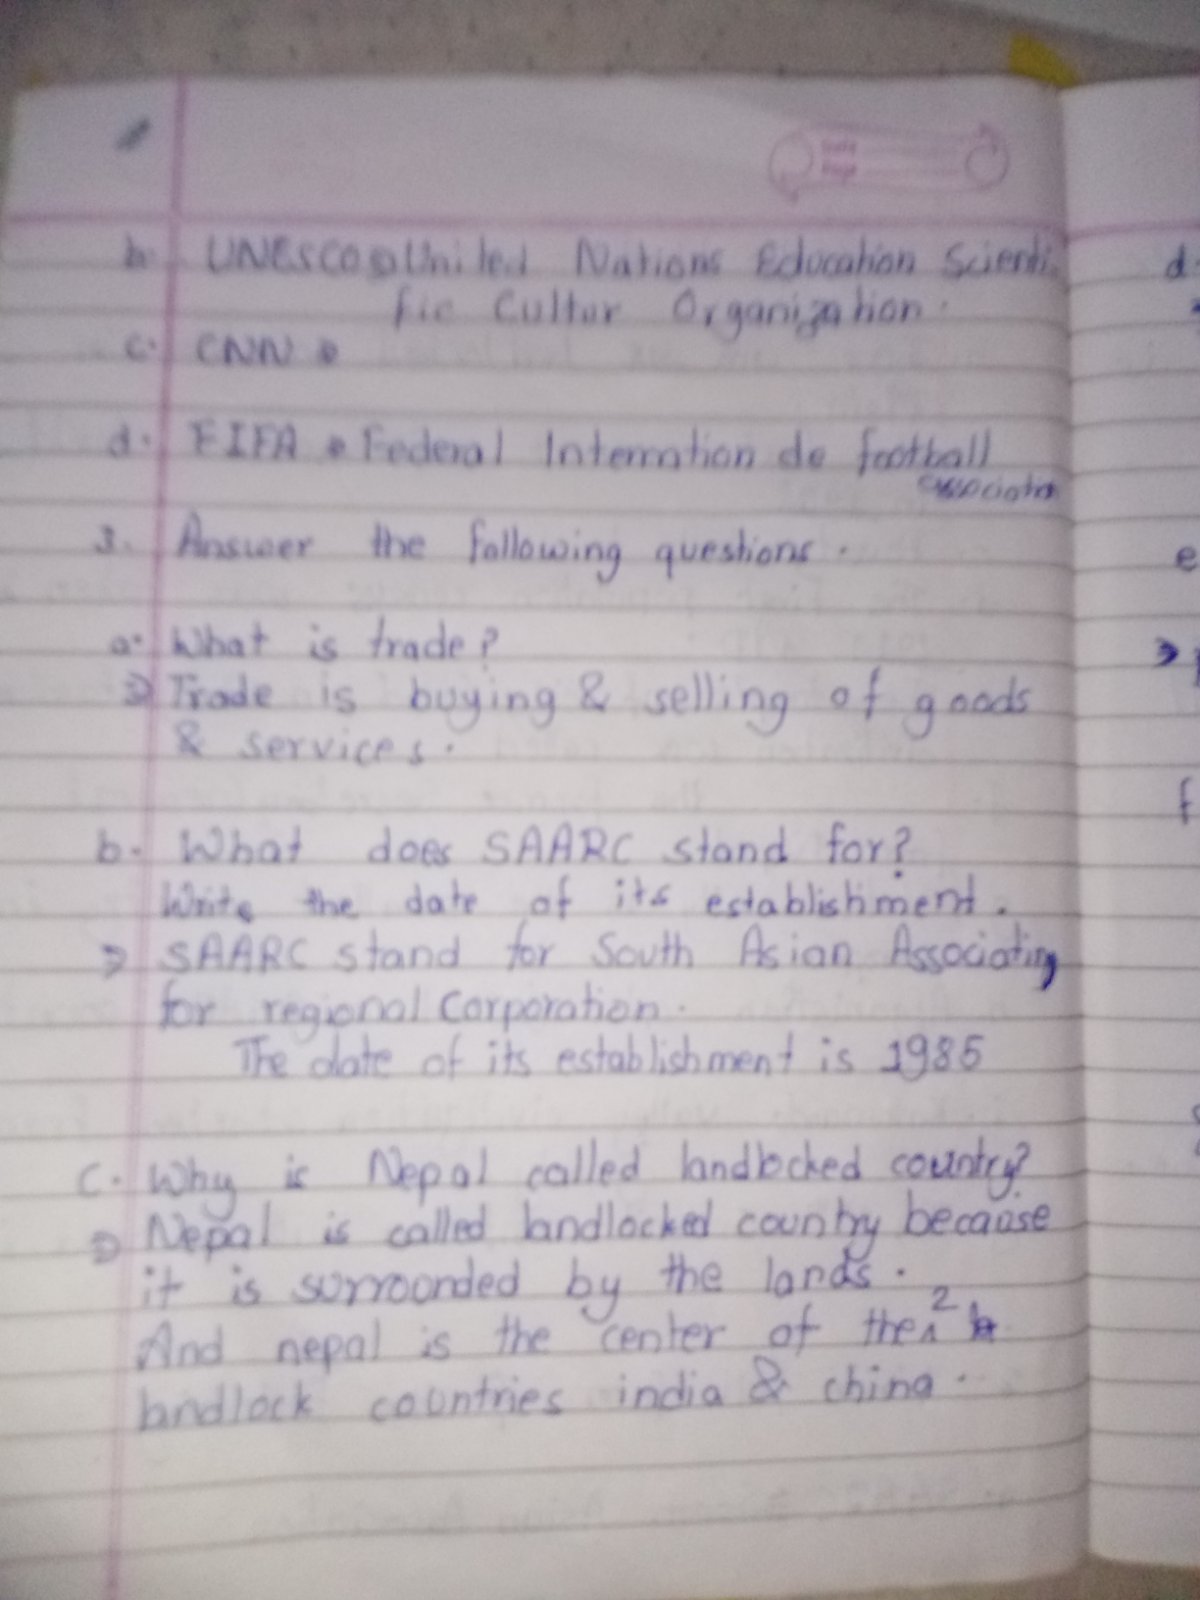 b. UNESCO ⇒ United Nations Education Scienti
fic Cultur Organization.
c. CNN ⇒
d. FIFA ⇒ Federal Internation de football
associaton
3. Answer the following questions.
a. What is trade?
⇒ Trade is buying & selling of goods
& services.
b. What does SAARC stand for?
Write the date of its establishment.
⇒ SAARC stand for South Asian Associating
for regional Corporation.
The date of its establishment is 1985
C. Why is Nepal called landlocked country?
⇒ Nepal is called landlocked country because
it is surrounded by the lands.
And nepal is the center of the 2
landlock countries india & china.
d.
e
⇒
f